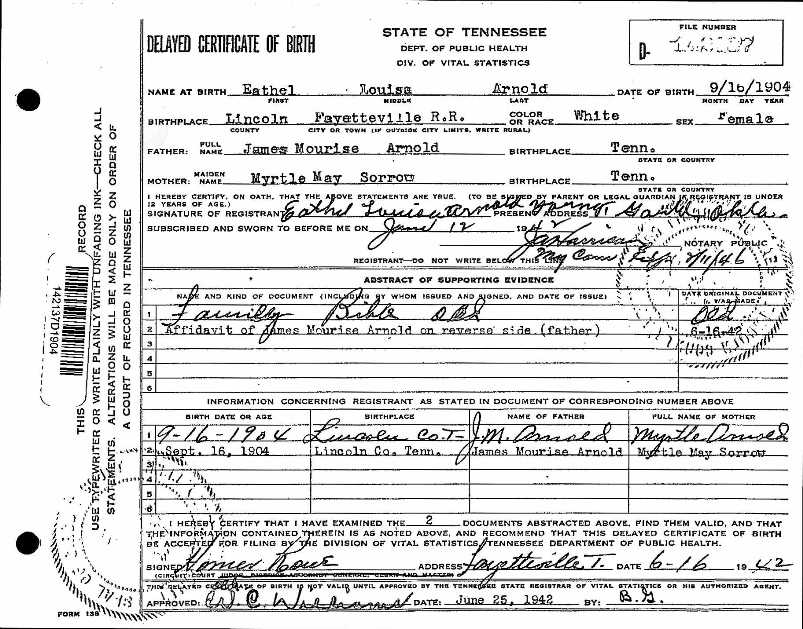 DELAYED CERTIFICATE OF BIRTH
STATE OF TENNESSEE
DEPT. OF PUBLIC HEALTH
DIV. OF VITAL STATISTICS
FILE NUMBER
D-
NAME AT BIRTH Eathel Louisa Arnold DATE OF BIRTH 9/16/1904
FIRST MIDDLE LAST MONTH DAY YEAR
BIRTHPLACE Lincoln Fayetteville R.R. COLOR OR RACE White SEX Female
COUNTY CITY OR TOWN (IF OUTSIDE CITY LIMITS, WRITE RURAL)
FATHER: FULL NAME James Mourise Arnold BIRTHPLACE Tenn.
STATE OR COUNTRY
MOTHER: MAIDEN NAME Myrtle May Sorrow BIRTHPLACE Tenn.
STATE OR COUNTRY
I HEREBY CERTIFY, ON OATH, THAT THE ABOVE STATEMENTS ARE TRUE. (TO BE SIGNED BY PARENT OR LEGAL GUARDIAN IF REGISTRANT IS UNDER
12 YEARS OF AGE.)
SIGNATURE OF REGISTRANT Eathel Louisa Arnold Young PRESENT ADDRESS
SUBSCRIBED AND SWORN TO BEFORE ME ON 12 1942
NOTARY PUBLIC
REGISTRANT—DO NOT WRITE BELOW THIS LINE My Com
ABSTRACT OF SUPPORTING EVIDENCE
NAME AND KIND OF DOCUMENT (INCLUDING BY WHOM ISSUED AND SIGNED, AND DATE OF ISSUE)
DATE ORIGINAL DOCUMENT WAS MADE
1 Family Bible Old
2 Affidavit of James Mourise Arnold on reverse side (father) 6-16-42
3
4
5
6
INFORMATION CONCERNING REGISTRANT AS STATED IN DOCUMENT OF CORRESPONDING NUMBER ABOVE
BIRTH DATE OR AGE BIRTHPLACE NAME OF FATHER FULL NAME OF MOTHER
1 9-16-1904 Lincoln Co. T- J.M. Arnold Myrtle Arnold
2 Sept. 16, 1904 Lincoln Co. Tenn. James Mourise Arnold Myrtle May Sorrow
3
4
5
6
I HEREBY CERTIFY THAT I HAVE EXAMINED THE 2 DOCUMENTS ABSTRACTED ABOVE, FIND THEM VALID, AND THAT
THE INFORMATION CONTAINED THEREIN IS AS NOTED ABOVE, AND RECOMMEND THAT THIS DELAYED CERTIFICATE OF BIRTH
BE ACCEPTED FOR FILING BY THE DIVISION OF VITAL STATISTICS, TENNESSEE DEPARTMENT OF PUBLIC HEALTH.
SIGNED ADDRESS Fayetteville T. DATE 6-16 1942
THIS DELAYED CERTIFICATE OF BIRTH IS NOT VALID UNTIL APPROVED BY THE TENNESSEE STATE REGISTRAR OF VITAL STATISTICS OR HIS AUTHORIZED AGENT.
APPROVED: W. C. Williams DATE: June 25, 1942 BY: B.G.
FORM 138
THIS RECORD
USE TYPEWRITER OR WRITE PLAINLY WITH UNFADING INK—CHECK ALL
STATEMENTS. ALTERATIONS WILL BE MADE ONLY ON ORDER OF
A COURT OF RECORD IN TENNESSEE
142137D1904